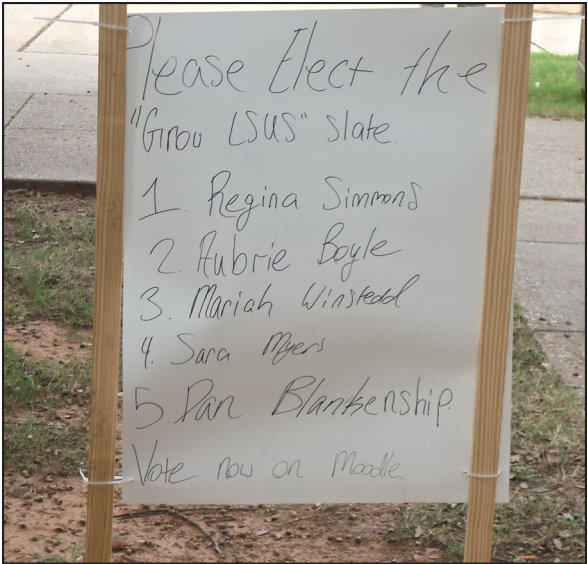 Please Elect the
"Grow LSUS" slate.
1. Regina Simmons
2. Aubrie Boyle
3. Mariah Winstedd
4. Sara Myers
5. Dan Blankenship.
Vote now on Moodle.